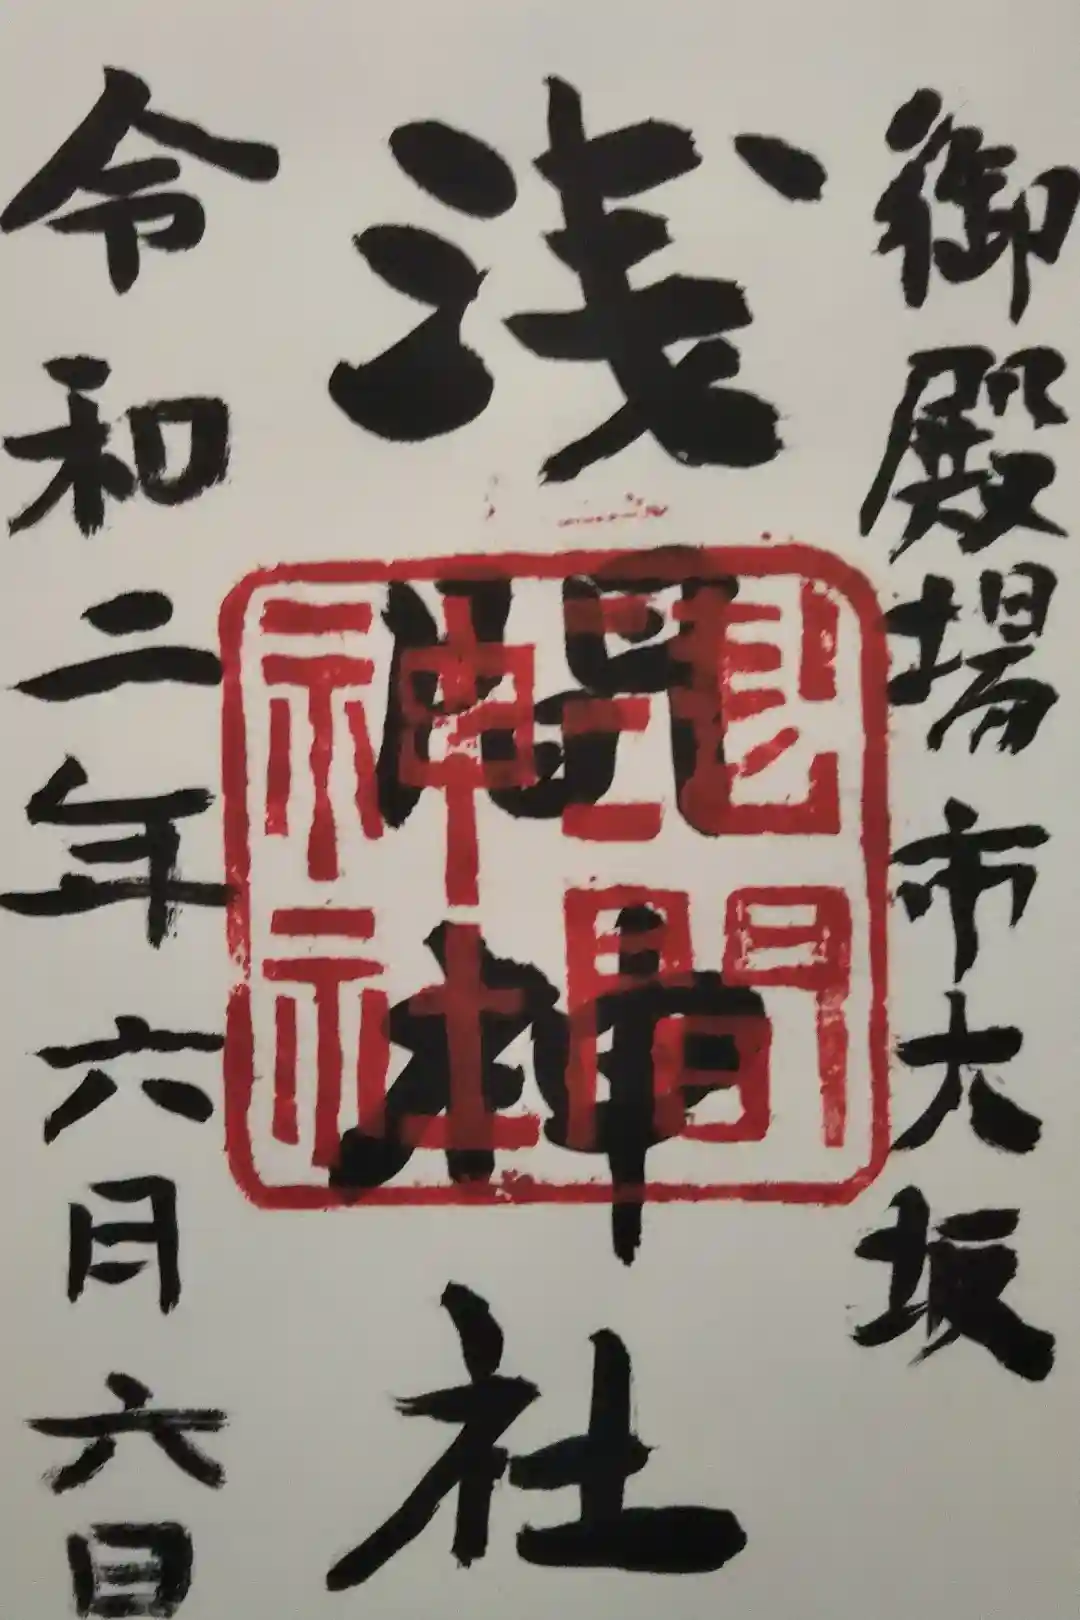 御殿場市大坂
浅間神社
浅間神社
令和二年六月六日